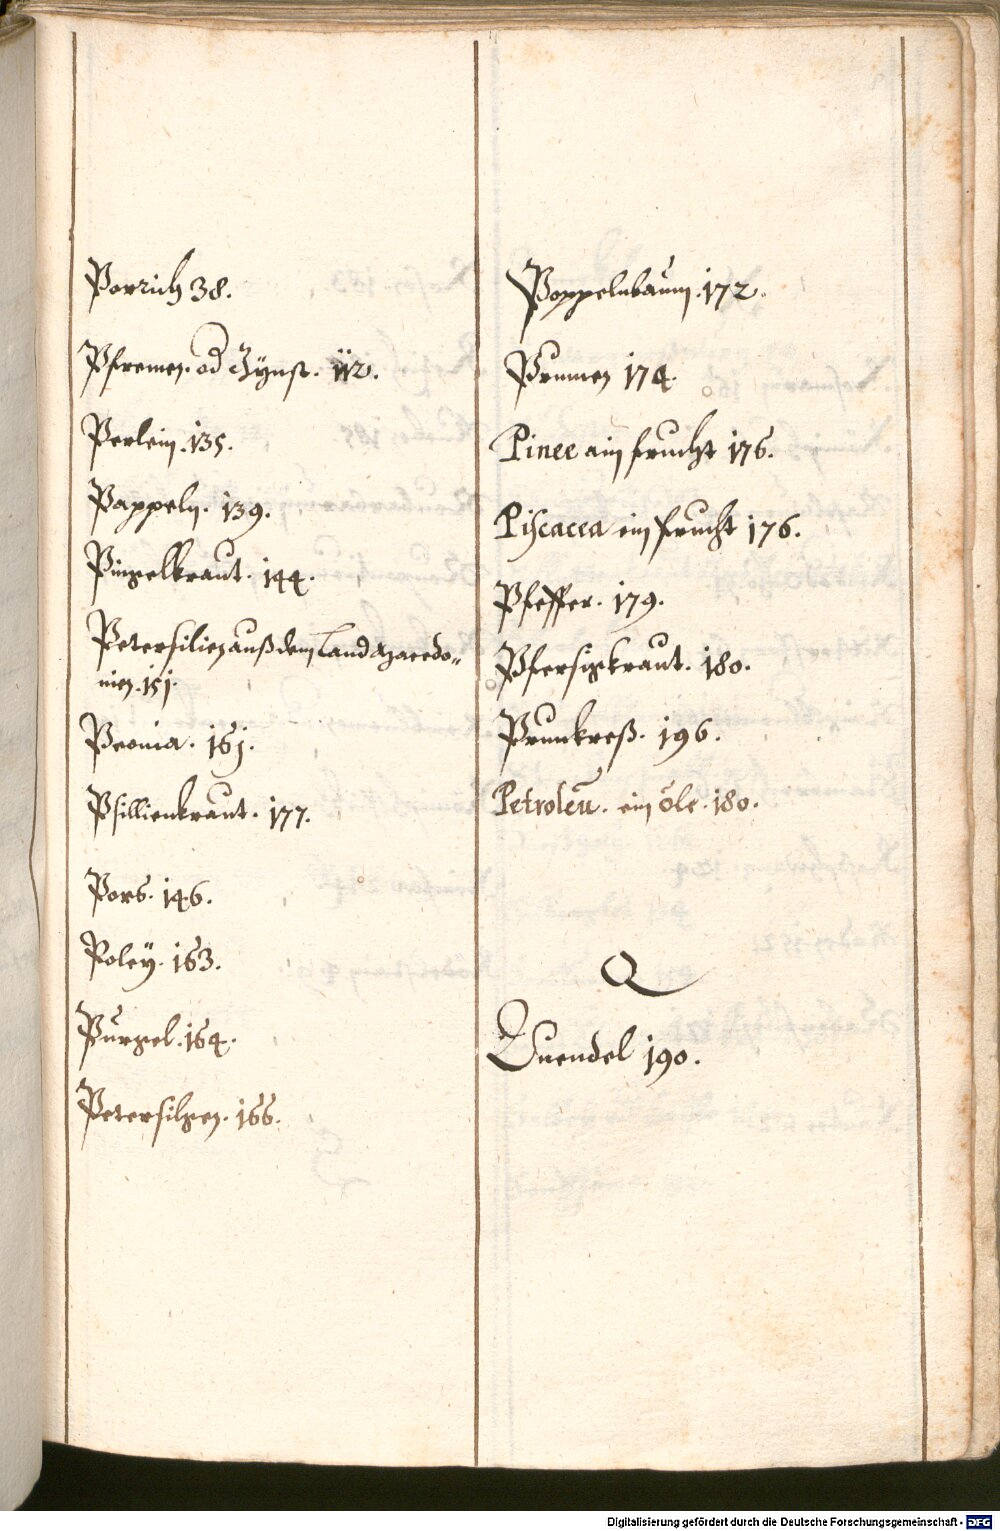 Porrich 38.
Pfremen. od Zynst. 112.
Perlein. 135.
Pappeln. 139.
Pingelkraut. 144.
Petersilien auß dem Land Macedo„
nien. 151.
Peonia. 161.
Psillienkraut. 177.
Pors. 146.
Poleÿ. 163.
Pŭrgel. 164.
Petersilgen. 166.
Poppelnbaŭm. 172.
Prumen 174.
Pinee ain frucht 176.
Piscacea ein frucht 176.
Pfeffer. 179.
Pfersigkraut. 180.
Prunkreß. 196.
Petroleū. ein öle. 180.
Q
Quendel 190.
Digitalisierung gefördert durch die Deutsche Forschungsgemeinschaft - DFG